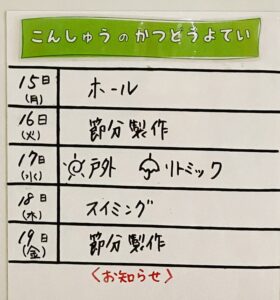 こんしゅうのかつどうよてい
15日(月) ホール
16日(火) 節分製作
17日(水) 戸外 リトミック
18日(木) スイミング
19日(金) 節分製作
＜お知らせ＞